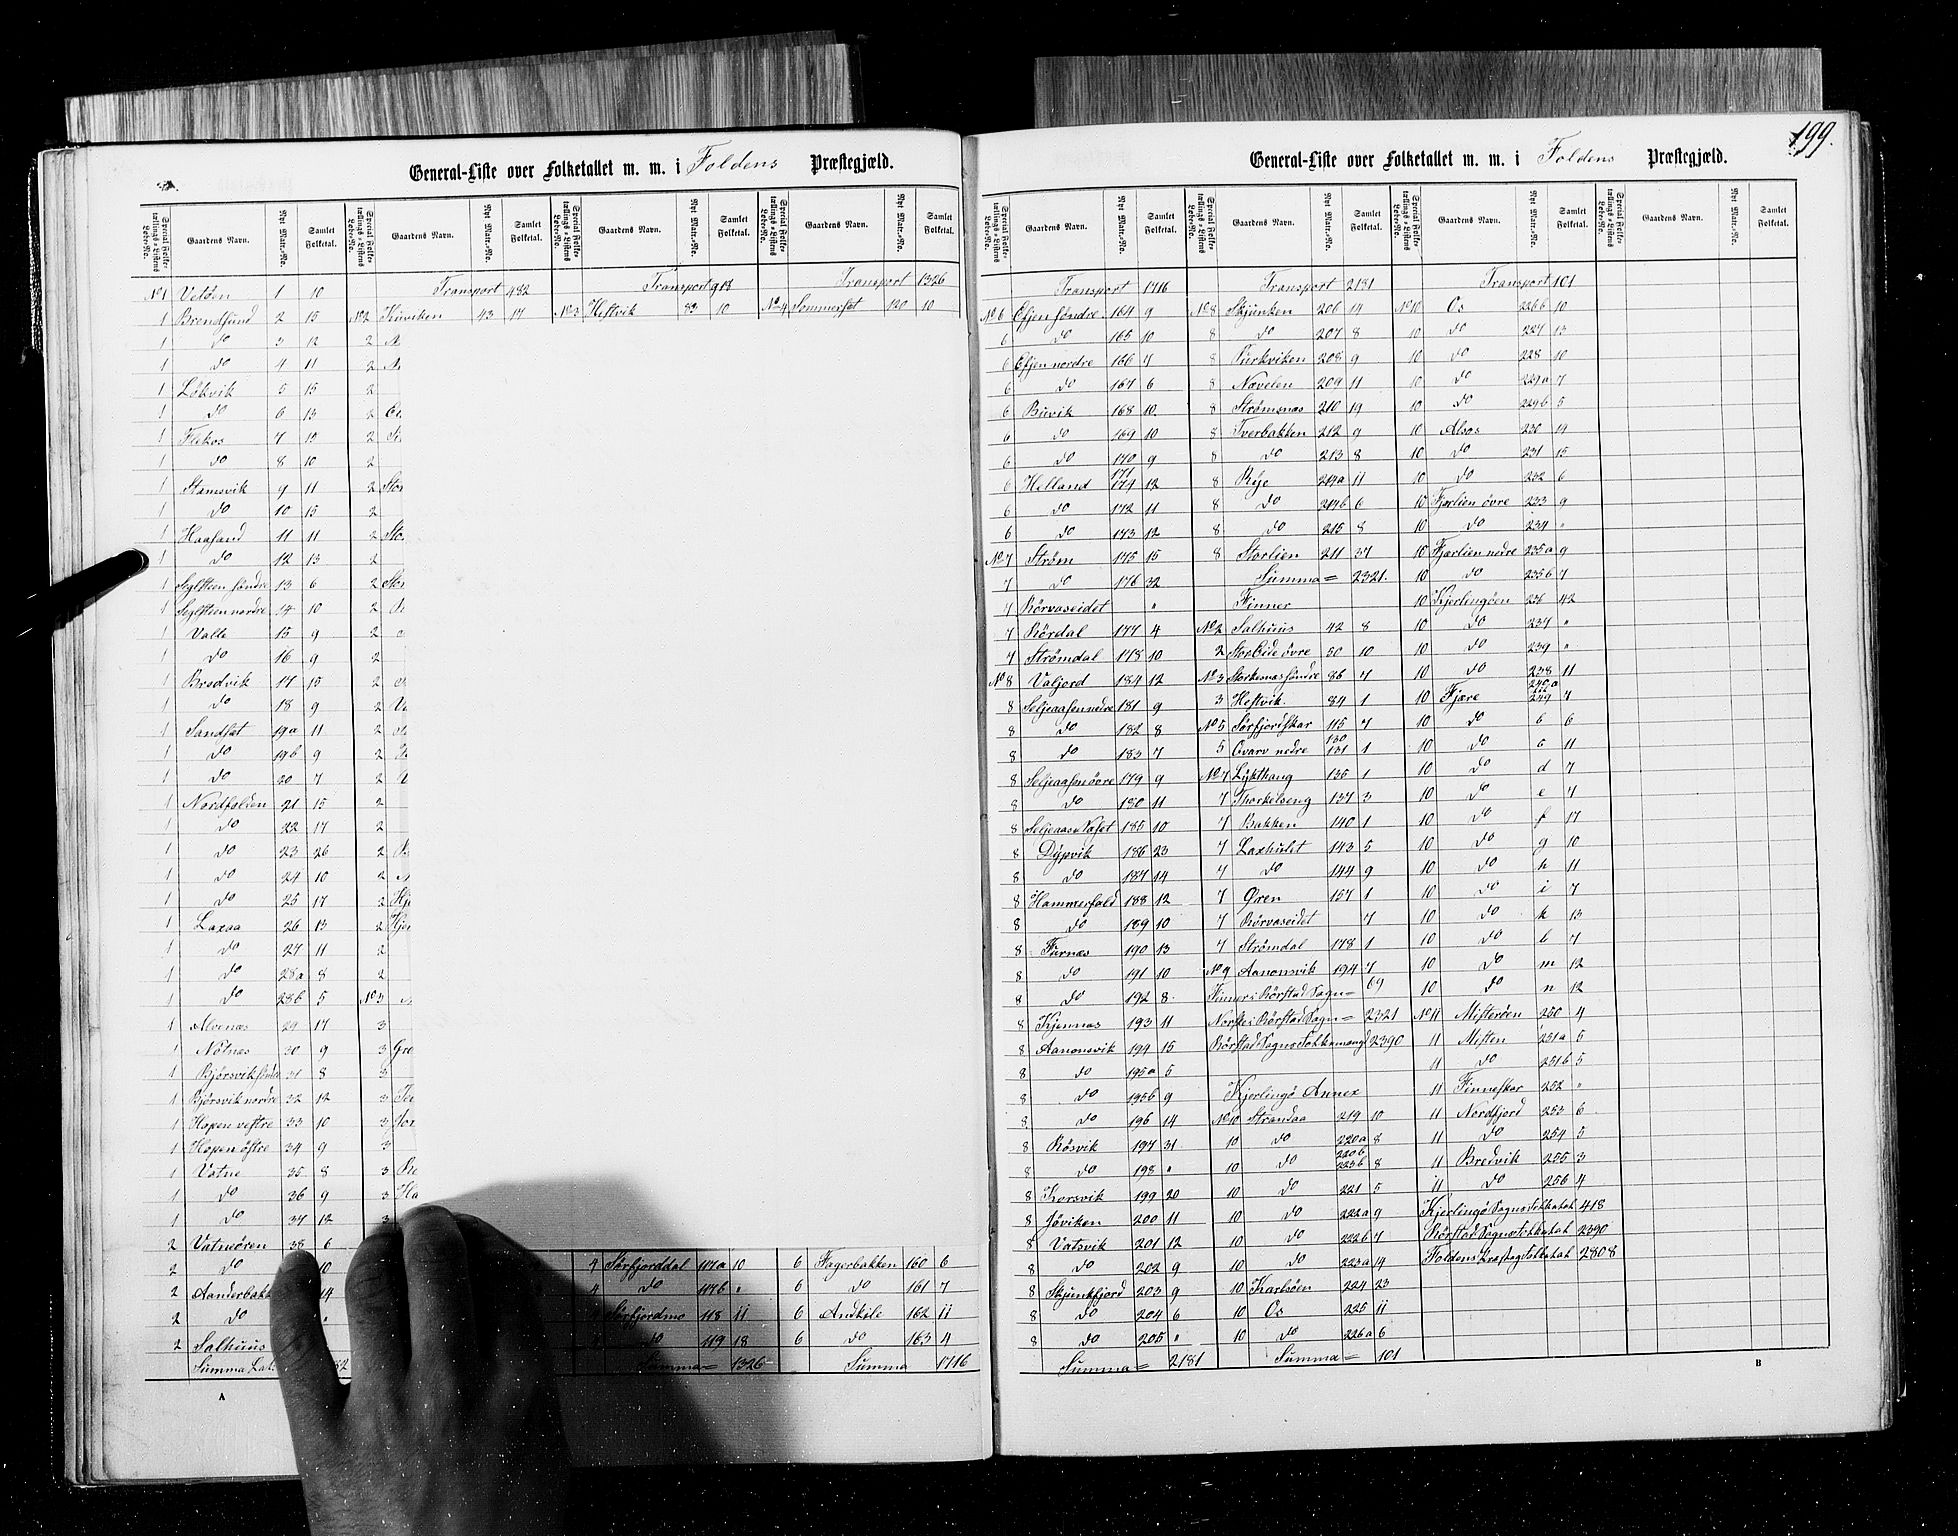 General-Liste over Folketallet m. m. i Foldens Præstegjæld.
Special Folketællings-Listens Løbe-No. Gaardens Navn. Nyt Matr.-No. Samlet Folketal. Special Folketællings-Listens Løbe-No. Gaardens Navn. Nyt Matr.-No. Samlet Folketal. Special Folketællings-Listens Løbe-No. Gaardens Navn. Nyt Matr.-No. Samlet Folketal. Special Folketællings-Listens Løbe-No. Gaardens Navn. Nyt Matr.-No. Samlet Folketal.
No 1 Vetöen 1 10 Transport 482 Transport 918 Transport 1326
1 Brendsund 2 15 No 2 Kuviken 43 17 No 3 Hestvik 83 10 No 4 Sommerset 120 10
1 do 3 12 2
1 do 4 11 2
1 Lökvik 5 15 2
1 do 6 13 2
1 Flekos 7 15 2
1 do 8 10 2
1 Stamsvik 9 11 2 Stor
1 do 10 15 2
1 Haasand 11 11 2 Sto
1 do 12 13 2
1 Seglsteen söndre 13 6 2 Stor
1 Seglsteen nordre 14 10 2
1 Valle 15 9 2
1 do 16 9 2
1 Bredvik 17 15 2
1 do 18 9 2
1 Sandset 19a 11 2
1 do 19b 9 2
1 do 20 7 2
1 Nordfolden 21 15 2
1 do 22 17 2
1 do 23 26 2
1 do 24 10 2
1 do 25 17 2 Hj
1 Laxaa 26 13 2
1 do 27 11 2
1 do 28a 8 2
1 do 28b 5 No 3
1 Alvenæs 29 17 3
1 Nötnæs 30 9 3 Gro
1 Bjørsvik söndre 31 8 3
1 Bjørsvik nordre 32 12 3
1 Hopen vestre 33 10 3
1 Hopen östre 34 9 3
1 Vatne 35 8 3
1 do 36 9 3 Ha
1 do 37 12 3
2 Vatneören 38 6
2 do 10 4 Sörfjorddal 117a 10 6 Fagerbakken 160 6
2 Aanderbakk 14 4 do 117b " 6 do 161 7
2 do " Sörfjordmo 118 11 6 Andkile 162 11
2 Salhuus do 119 18 6 do 163 4
Summa Lat. 82 Summa = 1326 Summa 1716
A
199.
General-Liste over Folketallet m. m. i Foldens Præstegjæld.
Special Folketællings-Listens Løbe-No. Gaardens Navn. Nyt Matr.-No. Samlet Folketal. Special Folketællings-Listens Løbe-No. Gaardens Navn. Nyt Matr.-No. Samlet Folketal. Special Folketællings-Listens Løbe-No. Gaardens Navn. Nyt Matr.-No. Samlet Folketal. Special Folketællings-Listens Løbe-No. Gaardens Navn. Nyt Matr.-No. Samlet Folketal.
Transport 1716 Transport 2181 Transport 101
No 6 Efjen söndre 164 9 No 8 Skjunken 206 14 No 10 Os 226b 10
6 do 165 10 8 do 207 8 10 do 227 13
6 Efjen nordre 166 7 8 Purkviken 208 9 10 do 228 10
6 do 167 6 8 Nævelen 209 11 10 do 229a 7
6 Buvik 168 10 8 Strömsnæs 210 19 10 do 229b 5
6 do 169 10 8 Tverbakken 212 9 10 Alsos 230 19
6 do 170 9 8 do 213 8 10 do 231 15
6 Helland 171 174 12 8 Röje 214a 11 10 do 232 6
6 do 172 11 8 do 214b 6 10 Fjærlien övre 233 9
6 do 173 12 8 do 215 8 10 do 234 "
No 7 Ström 175 15 8 Storlien 211 37 10 Fjærlien nedre 235a 9
7 do 176 32 Summa = 2321. 10 do 235b 7
7 Rörvaseidet " Finner 10 Kjerlingöen 236 42
7 Rördal 177 4 No 2 Salhuus 42 8 10 do 237 "
7 Strömdal 178 10 2 Storeide övre 50 10 10 do 239 "
No 8 Valjord 184 12 No 3 Storkesnæs söndre 86 7 10 do 238 11
8 Seljeaasen nedre 181 9 3 Hestvik 84 1 10 Fjære 240a 249 7
8 do 182 8 No 5 Sörfjordskar 115 7 10 do b 6
8 do 183 7 5 Qvarv nedre 130 131 1 10 do c 11
8 Seljeaasen övre 179 9 No 7 Lykthaug 135 1 10 do d 7
8 do 180 11 7 Thorkelseng 137 3 10 do e 7
8 Seljeaas Næset 185 10 7 Bakken 140 1 10 do f 17
8 Dypvik 186 23 7 Laxhulet 143 5 10 do g 10
8 do 187 14 7 do 144 9 10 do h 11
8 Hammerfald 188 12 7 Øren 157 1 10 do i 7
8 do 189 10 7 Rörvaseidet 7 10 do k 13
8 Furnæs 190 13 7 Strömdal 178 1 10 do l 7
8 do 191 10 No 9 Aanonsvik 194 7 10 do m 12
8 do 192 8 Finner i Rörstad Sogn = 69 10 do n 12
8 Kjennæs 193 11 Norske i Rörstad Sogn = 2321 No 11 Misteröen 250 4
8 Aanonsvik 194 15 Rörstad Sogns Folkemængd 2390 11 Misten 251a 5
8 do 195a 5 11 do 251b 5
8 do 195b 9 Kjerlingö Annex 11 Finneskar 252 "
8 do 196 14 No 10 Strandaa 219 10 11 Nordfjord 253 6
8 Rösvik 197 31 10 do 220a 8 11 do 254 5
8 do 198 " 10 do 220b 223b 8 11 Bredvik 255 3
8 Korsvik 199 20 10 do 221 5 11 do 256 4
8 Jöviken 200 11 10 do 222a 9 Kjerlingö Sogns Folketal 418
8 Vatsvik 201 12 10 do 222b 7 Rörstad Sogns Folketal 2390
8 do 202 9 10 do 223a 14 Foldens Præsteg. Folketal 2808
8 Skjunkfjord 203 9 10 Karlsöen 224 23
8 do 204 6 10 Os 225 11
8 do 205 " 10 do 226a 6
Summa = 2181 Summa = 101
B